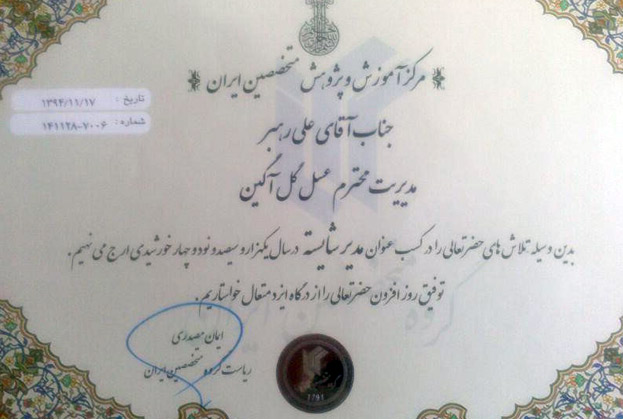 مرکز آموزش و پژوهش متخصصین ایران
تاریخ : ۱۳۹۴/۱۱/۱۷
شماره : ۱۴۱۱۲۸-۷۰۰۶
جناب آقای علی رهبر
مدیریت محترم عسل گل آگین
بدین وسیله تلاش های حضرتعالی را در کسب عنوان مدیر شایسته در سال یکهزار و سیصد و نود و چهار خورشیدی ارج می نهیم .
توفیق روز افزون حضرتعالی را از درگاه ایزد متعال خواستاریم .
ایمان مصدری
ریاست گروه متخصصین ایران
1791